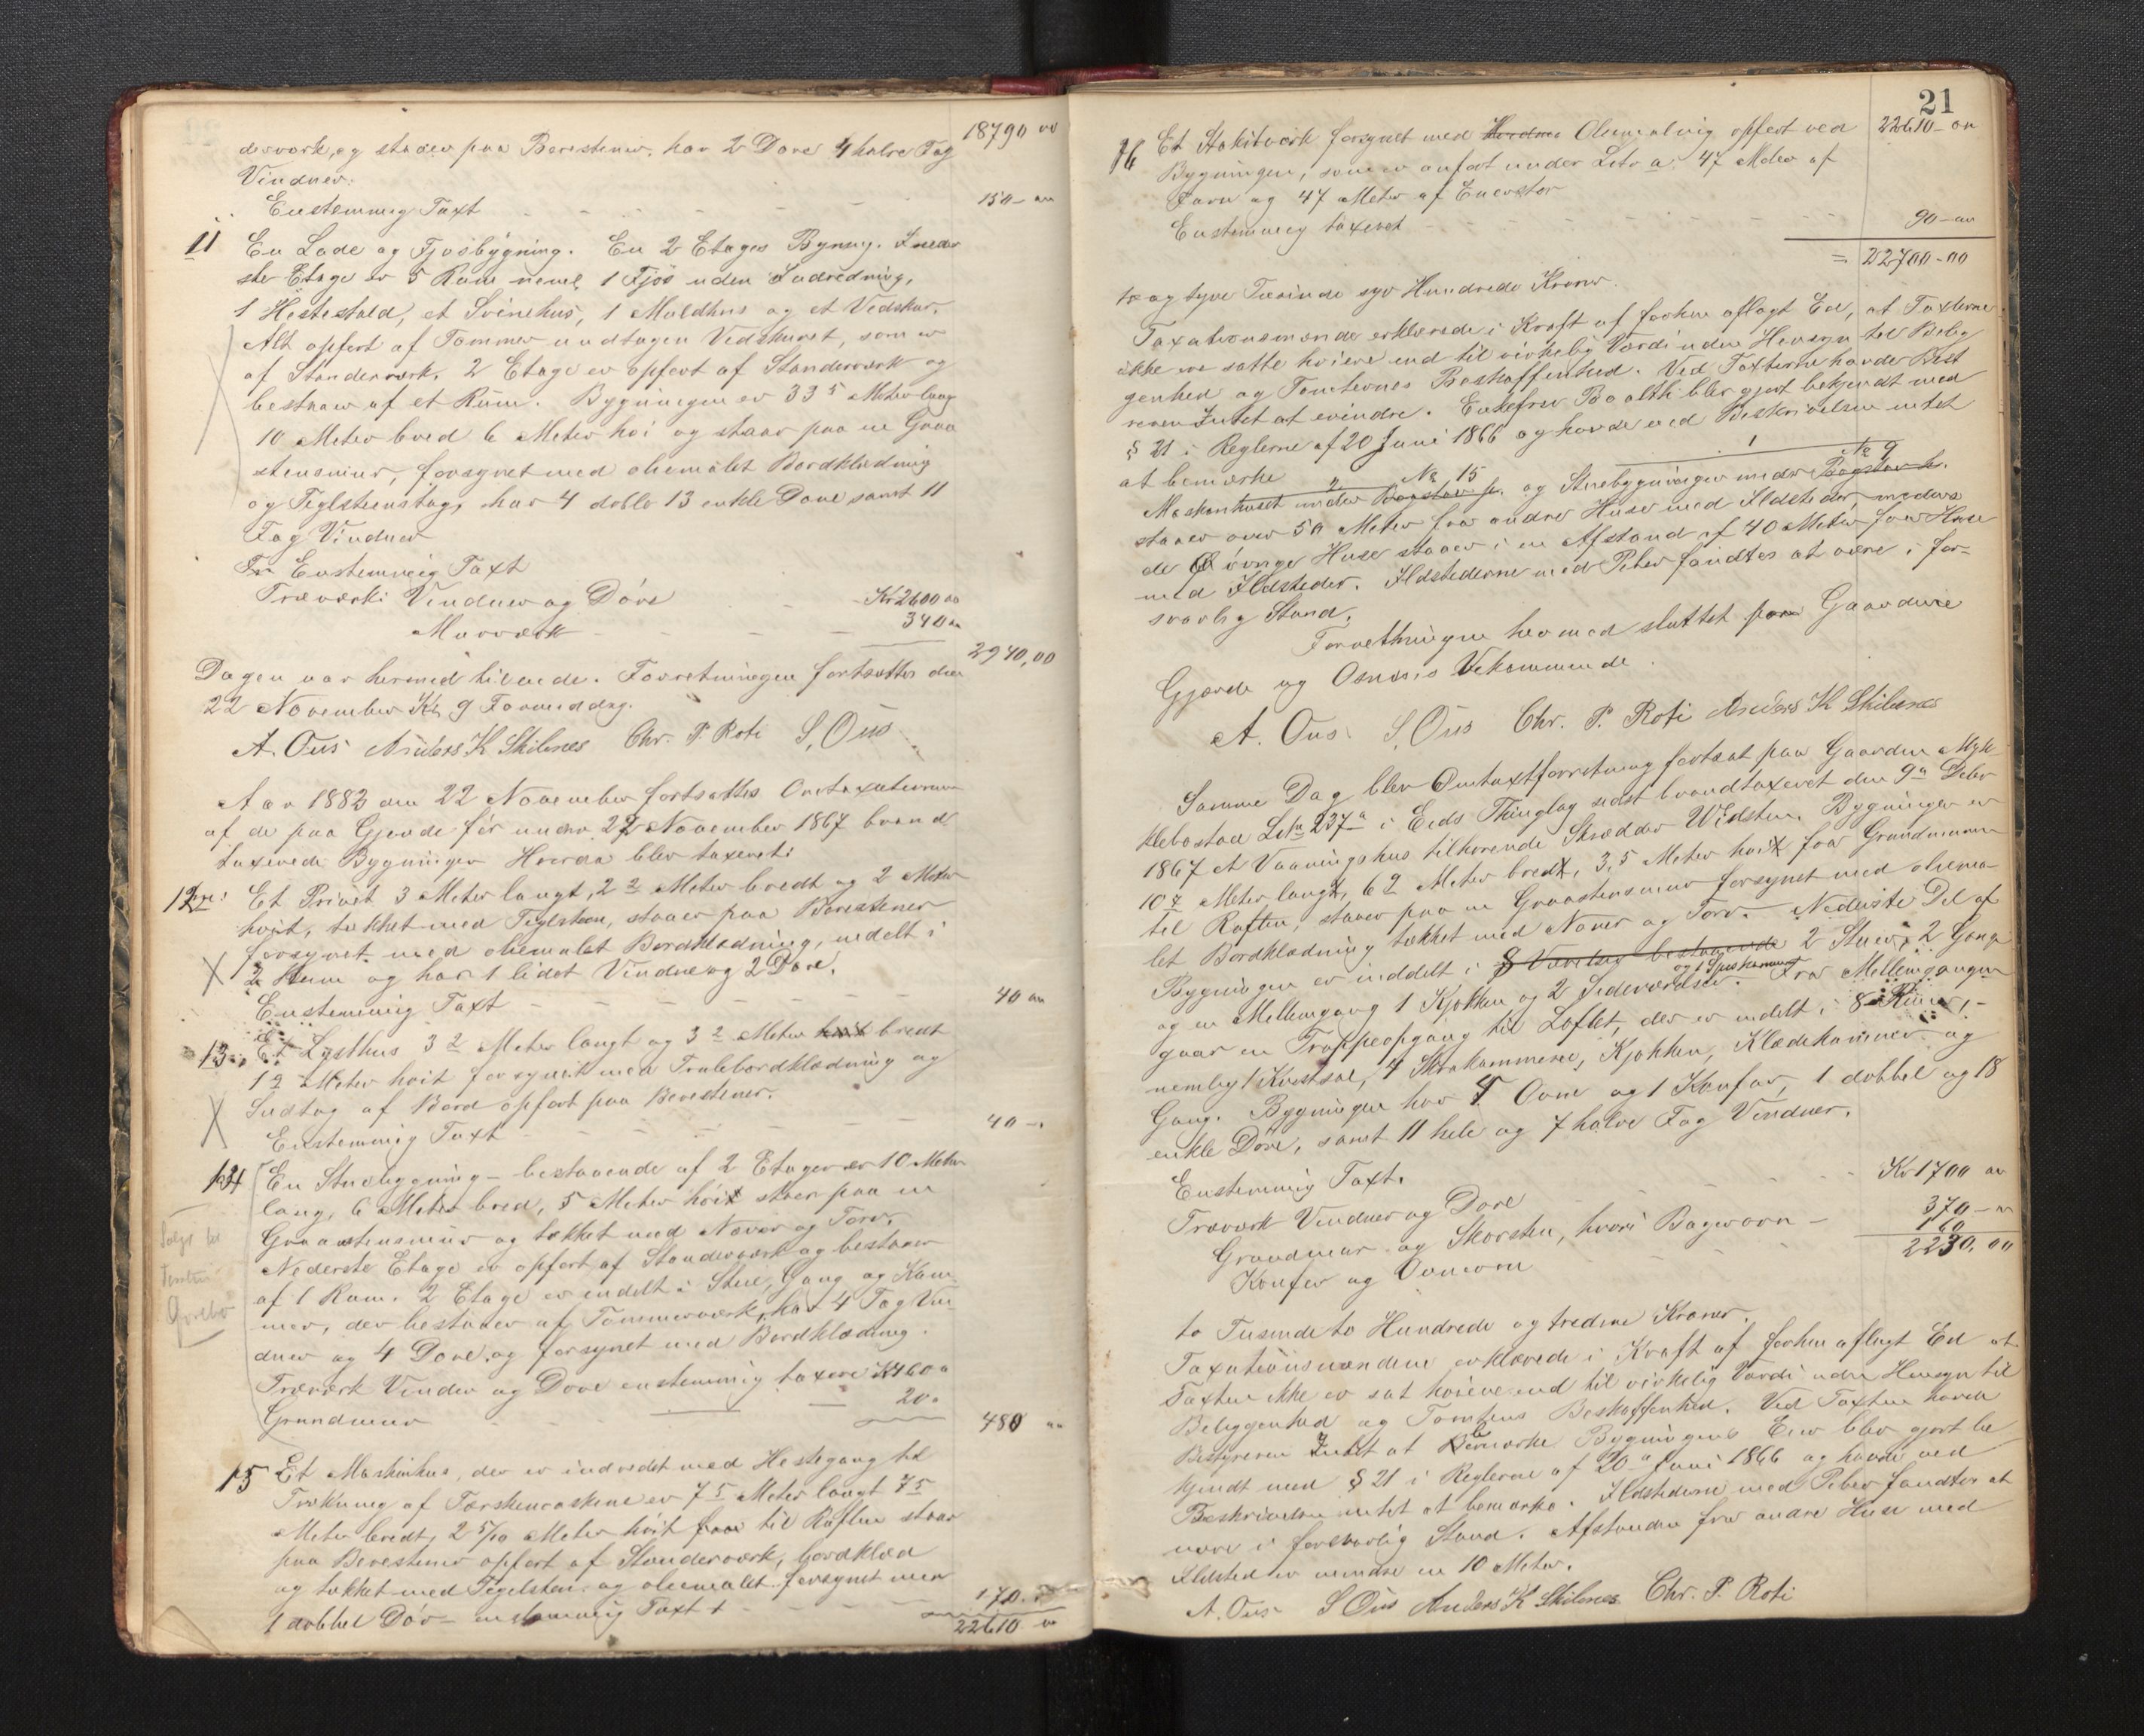 derværk, og staaer paa Berestener, har 2 Døre 4 halve Fag
Vinduer.
18790 00
Enstemmig Taxt - - - - 150 - 00
11 En Lade og Fjøsbygning. En 2 Etages Bygning. I neder
ste Etage er 5 Rum neml. 1 Fjøs uden Indredning,
1 Hestestald, et Svinehus, 1 Møldhus og et Vedskur.
Alt opført af Tømmer undtagen Vedskuret, som er
af Standerværk. 2 Etage er opført af Standerværk og
bestaaer af et Rum. Bygningen er 33 5 Meter lang
10 Meter bred 6 Meter høi og staar paa en Graa
stensmur, forsynet med oliemalet Bordklædning
og Teglstenstag, har 4 doble 13 enkle Døre samt 11
Fag Vinduer
Enstemmig Taxt
Træværk: Vinduer og Døre - - Kr 2600 00
Murværk - - - 340 00
2940,00
Dagen var hermed tilende. Forretningen fortsættes den
22 November Kl. 9 Formiddag.
A. Ous Anders K Skibenes Chr. P. Roti S. Ous
Aar 1883 den 22 November fortsattes Omtaxationen
af de paa Gjerde før under 22 November 1867 brand
taxerede Bygninger Hvorda blev taxeret:
12 Et Privet 3 Meter langt, 2 2 Meter bredt og 2 Meter
høit, tækket med Teglsten, staaer paa Berestener
forsynet med oliemalet Bordklædning, inddelt i
2 Rum og har 1 lidet Vindue og 2 Døre.
Enstemmig Taxt - - - - 40 00
13. Et Lysthus 3 2 Meter langt og 3 2 Meter høit bredt
1 9 Meter høit forsynet med Tralebordklædning og
Sudtag af Bord opført paa Berestener.
Enstemmig Taxt - - - - 40 -
14 En Stuebygning - bestaaende af 2 Etager er 10 Meter
lang, 6 Meter bred, 5 Meter høi staar paa en
Graastensmur og tækket med Næver og Torv.
Nederste Etage er opført af Standerværk og bestaaer
af 1 Rum. 2 Etage er inddelt i Stue, Gang og Kam
mer, der bestaaer af Tømmerværk, har 4 Fag Vin
duer og 4 Døre, og forsynet med Bordklædning.
Træværk Vinduer og Døre enstemmig taxeret Kr 460 0
Grundmur - - 20 0
480 00
15 Et Maskinhus, der er indredet med Hestegang til
Trækning af Tærskemaskine er 7 5 Meter langt 7 5
Meter bredt, 2 5/10 Meter høit fra til Raften staar
paa Berestener opført af Standerværk, bordklæd
og tækket med Tegelsten og oliemalet forsynet med
1 dobbel Dør - enstemmig Taxt - - - 170 -
22610 00
21
16 Et Stakitværk forsynet med Oliemaling opført ved
22610 - 00
Bygningen, som er anført under Litr a. 47 Meter af
Furu og 47 Meter af Enerstør
Enstemmig taxeret - - - - 90 - 00
= 22700 - 00
to og tyve Tusinde syv Hundrede Kroner.
Taxationsmænde erklærede i Kraft af forhen aflagt Ed, at Taxterne
ikke ere satte høiere end til virkelig Værdi uden Hensyn til Belig
genhed og Tomternes Beskaffenhed. Ved Taxterne havde Best
reren Intet at erindre. Enkefru Boalth blev gjort bekjendt med
§ 21 i Reglerne af 20 Juni 1866 og havde ved Beskrivelsen intet
at bemærke
Maskinhuset under Bogstav p. No 15 og Stuebygningen under Bogstav h. No 9
staaer over 50 Meter fra andre Huse med Ildsteder, medens
de øvrige Huse staaer i en Afstand af 40 Meter fra Huse
med Ildsteder. Ildstederne med Piber fandtes at være i for-
svarlig Stand.
Forretningen hermed sluttet paa Gaardene
Gjærde og Osnæs Vekommende.
A. Ous S. Ous Chr. P. Roti Anders K Skibenes
Samme Dag blev Omtaxtforretning fortsat paa Gaarden Myk
klebostad Litr 237 a i Eids Thinglag sidst brandtaxeret den 9 a Febr
1867 et Vaaningshus tilhørende Skrædder Widsten. Bygningen er
10 7 Meter lang, 6 2 Meter bred, 3,5 Meter høi fra Grundmuren
til Raften, staaer paa en Graastensmur forsynet med oliema-
let Bordklædning tækket med Næver og Torv. Nederste Del af
Bygningen er inddelt i 8 Værelser bestaaende 2 Stuer, 2 Gange
og en Mellemgang 1 Kjøkken og 2 Sideværelser. og 1 Spiskammer Fra Mellemgangen
gaar en Trappeopgang til Loftet, der er inddelt i 8 Rum,
nemlig 1 Kvistsal, 4 Kvistkammere, Kjøkken, Klædekammer og
Gang. Bygningen har 4 Ovne og 1 Komfur, 1 dobbel og 18
enkle Døre, samt 11 hele og 7 halve Fag Vinduer.
Enstemmig Taxt.
Træværk Vinduer og Døre - - Kr 1700 00
Grundmur og Skorsten, hvori Bagerovn - 370 -
Komfur og Ovne - - 160
2230,00
to Tusinde to Hundrede og tredive Kroner.
Taxationsmændene erklærede i Kraft af forhen aflagt Ed at
Taxten ikke er sat høiere end til virkelig Værdi uden Hensyn til
Beliggenhed og Tomtens Beskaffenhed. Ved Taxten havde
Bestyreren Intet at bemærke Bygningens Eier blev gjort be
kjendt med § 21 i Reglerne af 20 Juni 1866 og havde ved
Beskrivelsen intet at bemærke. Ildstederne med Piber fandtes at
være i forsvarlig Stand. Afstanden fra andre Huse med
Ildsted er mindre en 10 Meter.
A. Ous S Ous Anders K Skibenes Chr. P. Roti